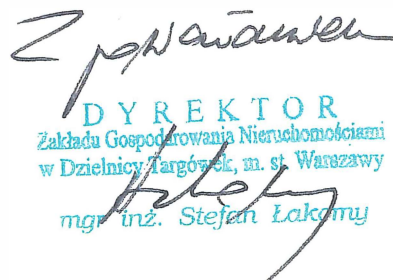 Z poważaniem
DYREKTOR
Zakładu Gospodarowania Nieruchomościami
w Dzielnicy Targówek, m. st. Warszawy
mgr inż. Stefan Łakomy